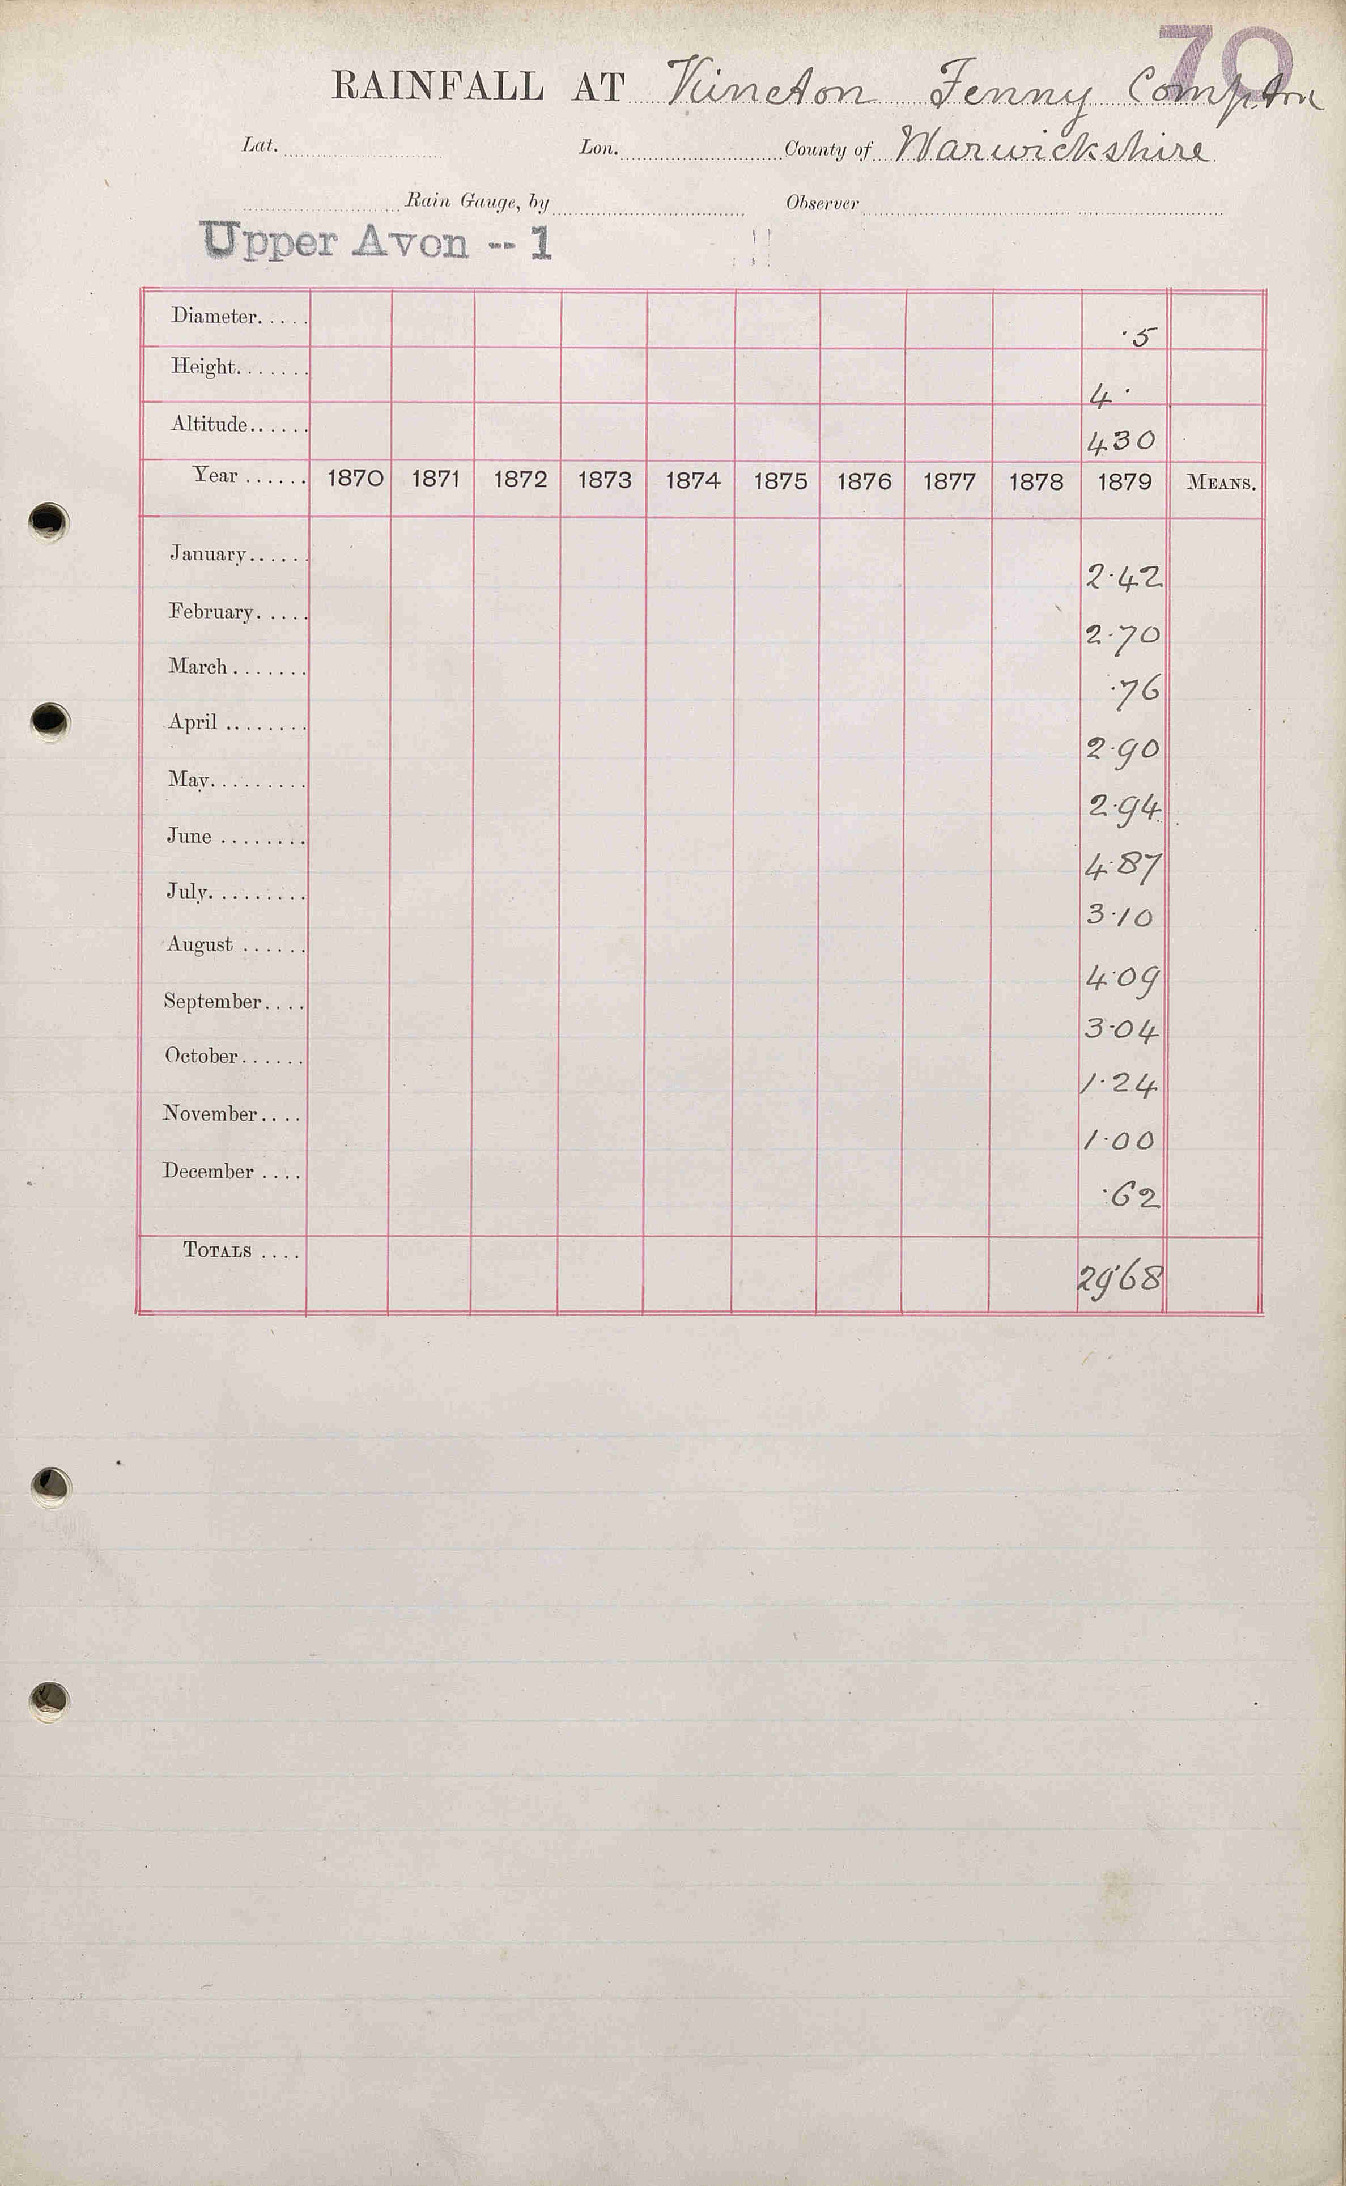 70
RAINFALL AT Kineton Fenny Compton
Lat. Lon. County of Warwickshire
Rain Gauge, by Observer
Upper Avon -- 1
Diameter..... ·5
Height....... 4·
Altitude...... 430
Year...... 1870 1871 1872 1873 1874 1875 1876 1877 1878 1879 MEANS.
January...... 2·42
February..... 2·70
March....... ·76
April ........ 2·90
May......... 2·94
June ........ 4·87
July......... 3·10
August ...... 4·09
September.... 3·04
October...... 1·24
November.... 1·00
December .... ·62
TOTALS .... 29·68